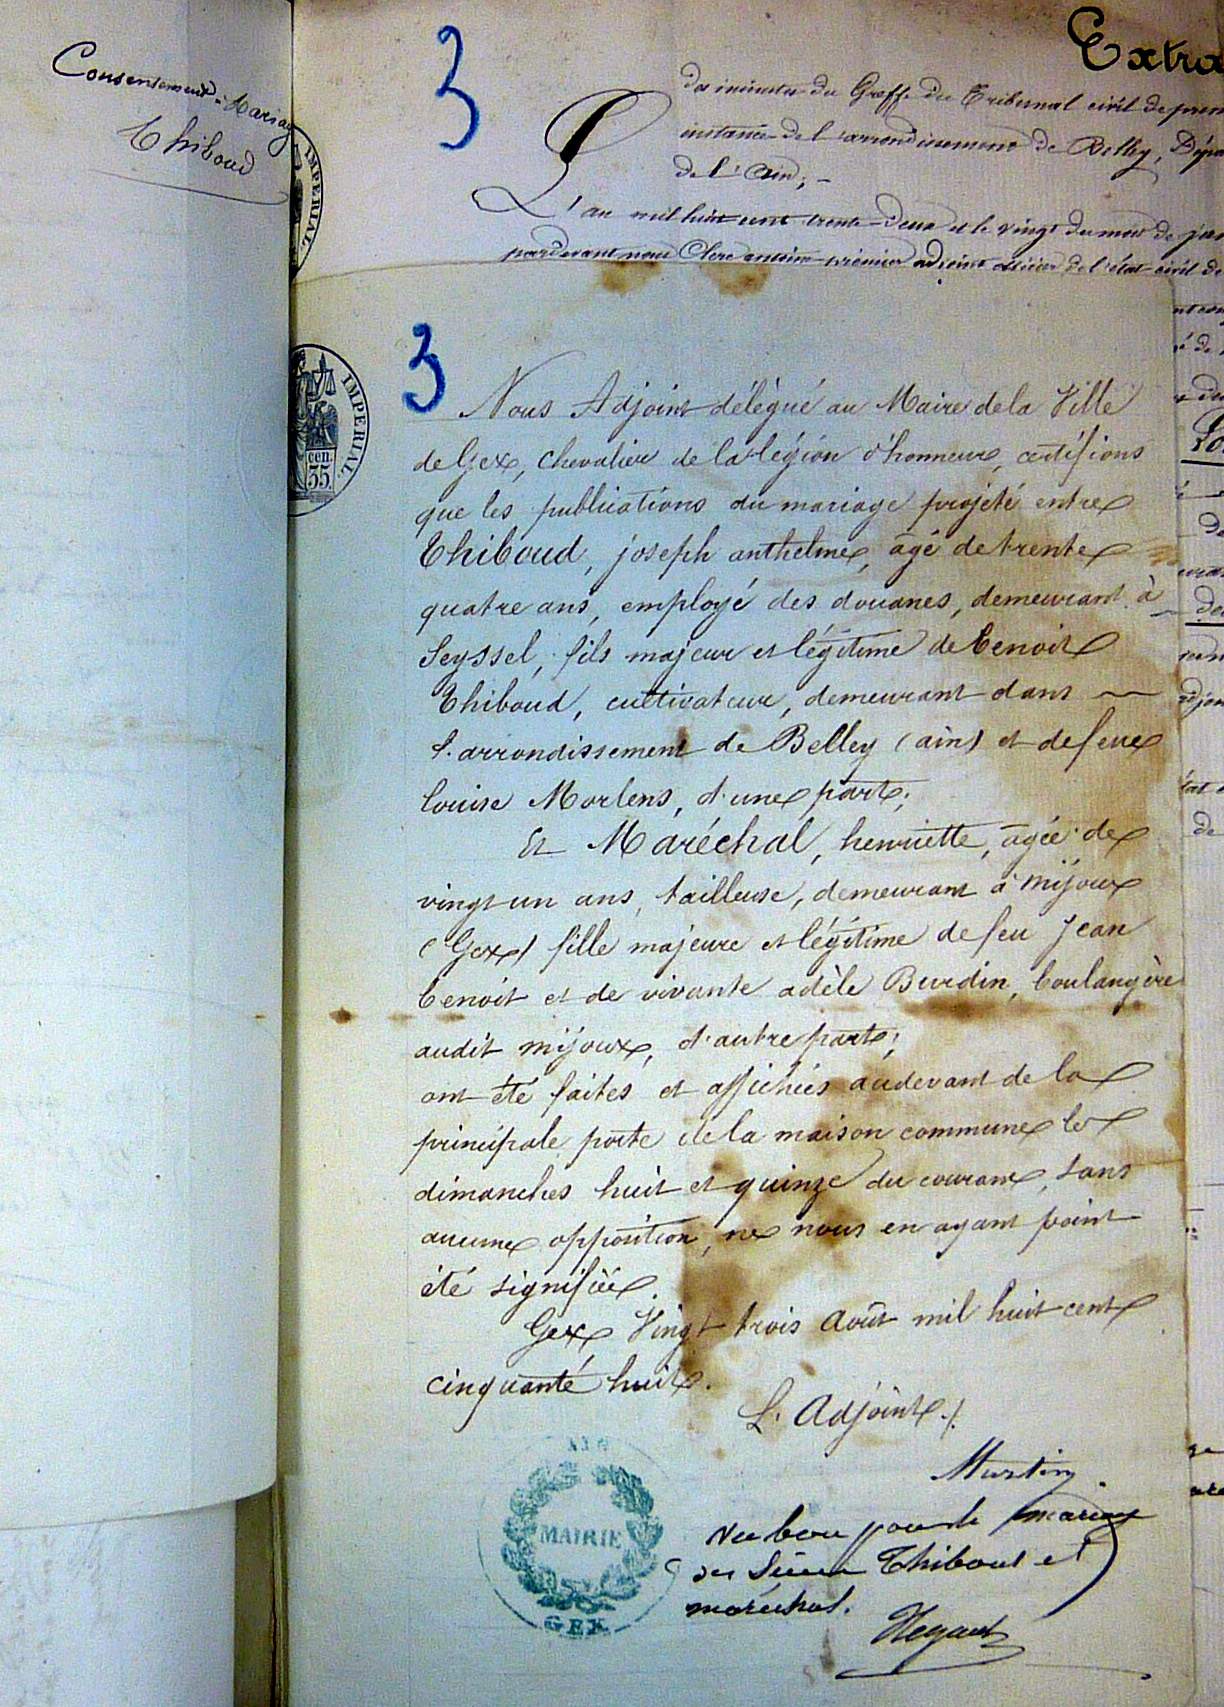 Consensement Mariag
Thiboud
3
Extra
des minutes du Greffe du Tribunal civil de prem
instance de l'arrondissement de Belley, Dépa
de l'Ain; -
L'an mil huit cent trente-deux et le vingt du mois de jan
pardevant nous Clerc antoine premier adjoint officier de l'état civil de
IMPERIAL
3
IMPERIAL
cen.
55.
Nous Adjoint délégué au Maire de la Ville
de Gex, chevalier de la légion d'honneur, certifions
que les publications du mariage projeté entre
Thiboud, joseph anthelme, âgé de trente
quatre ans, employé des douanes, demeurant à
Seyssel, fils majeur et légitime de benoit
Thiboud, cultivateur, demeurant dans
l'arrondissement de Belley (ain) et de feue
louise Morlens, d'une part;
Et Maréchal, henriette, âgée de
vingt un ans, tailleuse, demeurant à mijoux
(Gex) fille majeure et légitime de feu Jean
benoit et de vivante adèle Burdin, boulangère
audit mijoux, d'autre part;
ont été faites et affichées audevant de la
principale porte de la maison commune les
dimanches huit et quinze du courant, sans
aucune opposition, ne nous en ayant point
été signifiée.
Gex, Vingt trois Août mil huit cent
cinquante huit.
L'Adjoint,
AIN
MAIRIE
GEX
Vu bon pour le mariage
des Sieur Thiboud et
maréchal.